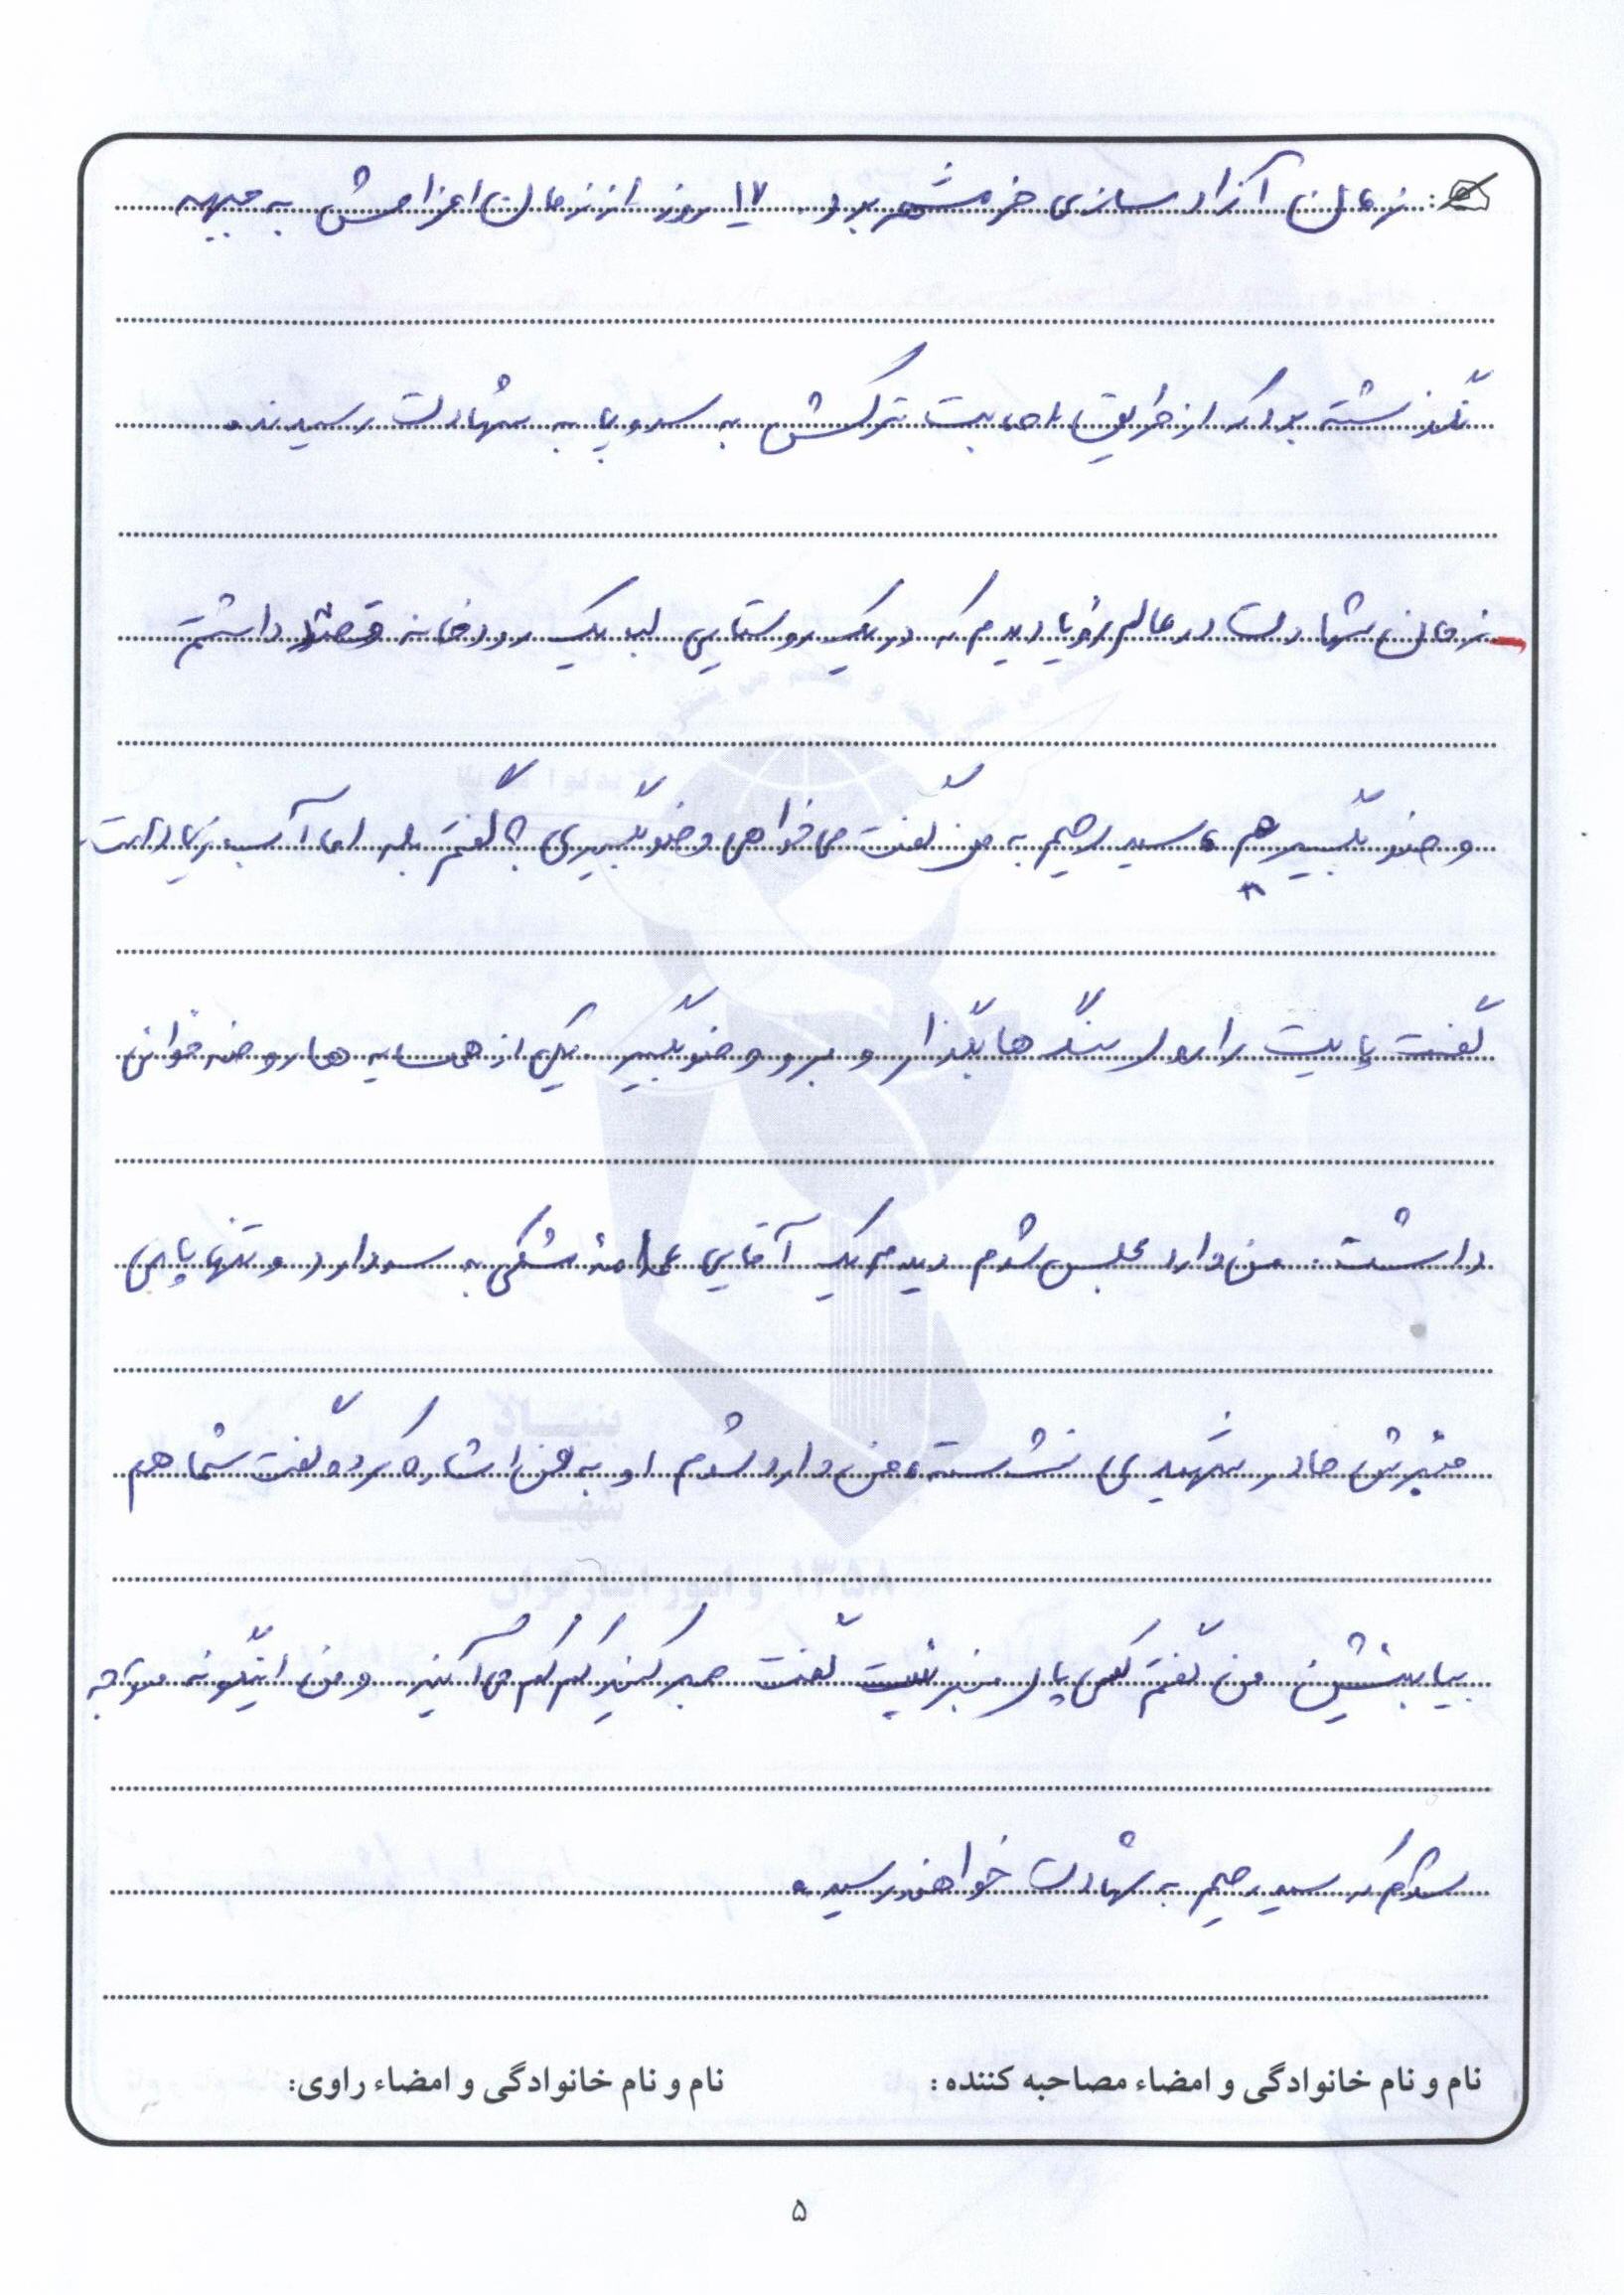 زمان آزاد سازی خرمشهر بود. ۱۷ روز از زمان اعزامش به جبهه
نگذشته بود که از طریق اصابت ترکش به سر و پا به شهادت رسیدند.
زمان شهادت در عالم رؤیا دیدم که در یک روستایی لب یک رودخانه قصد داشتم
وضو بگیرم، سید رحیم به من گفت می خواهی وضو بگیری؟ گفتم بله اما آب زیاد است.
گفت پایت را روی سنگ ها بگذار و برو وضو بگیر. یکی از همسایه ها روضه خوانی
داشت. من وارد مجلس شدم دیدم یک آقایی عمامه مشکی به سر دارد و تنها پای
منبرش مادر شهیدی نشسته، من وارد شدم او به من اشاره کرد و گفت شما هم
بیا بنشین من گفتم کسی پای منبر نیست گفت صبر کنید کم کم می آیند. و من اینگونه متوجه
شدم که سید رحیم به شهادت خواهند رسید.
نام و نام خانوادگی و امضاء مصاحبه کننده :
نام و نام خانوادگی و امضاء راوی:
۵